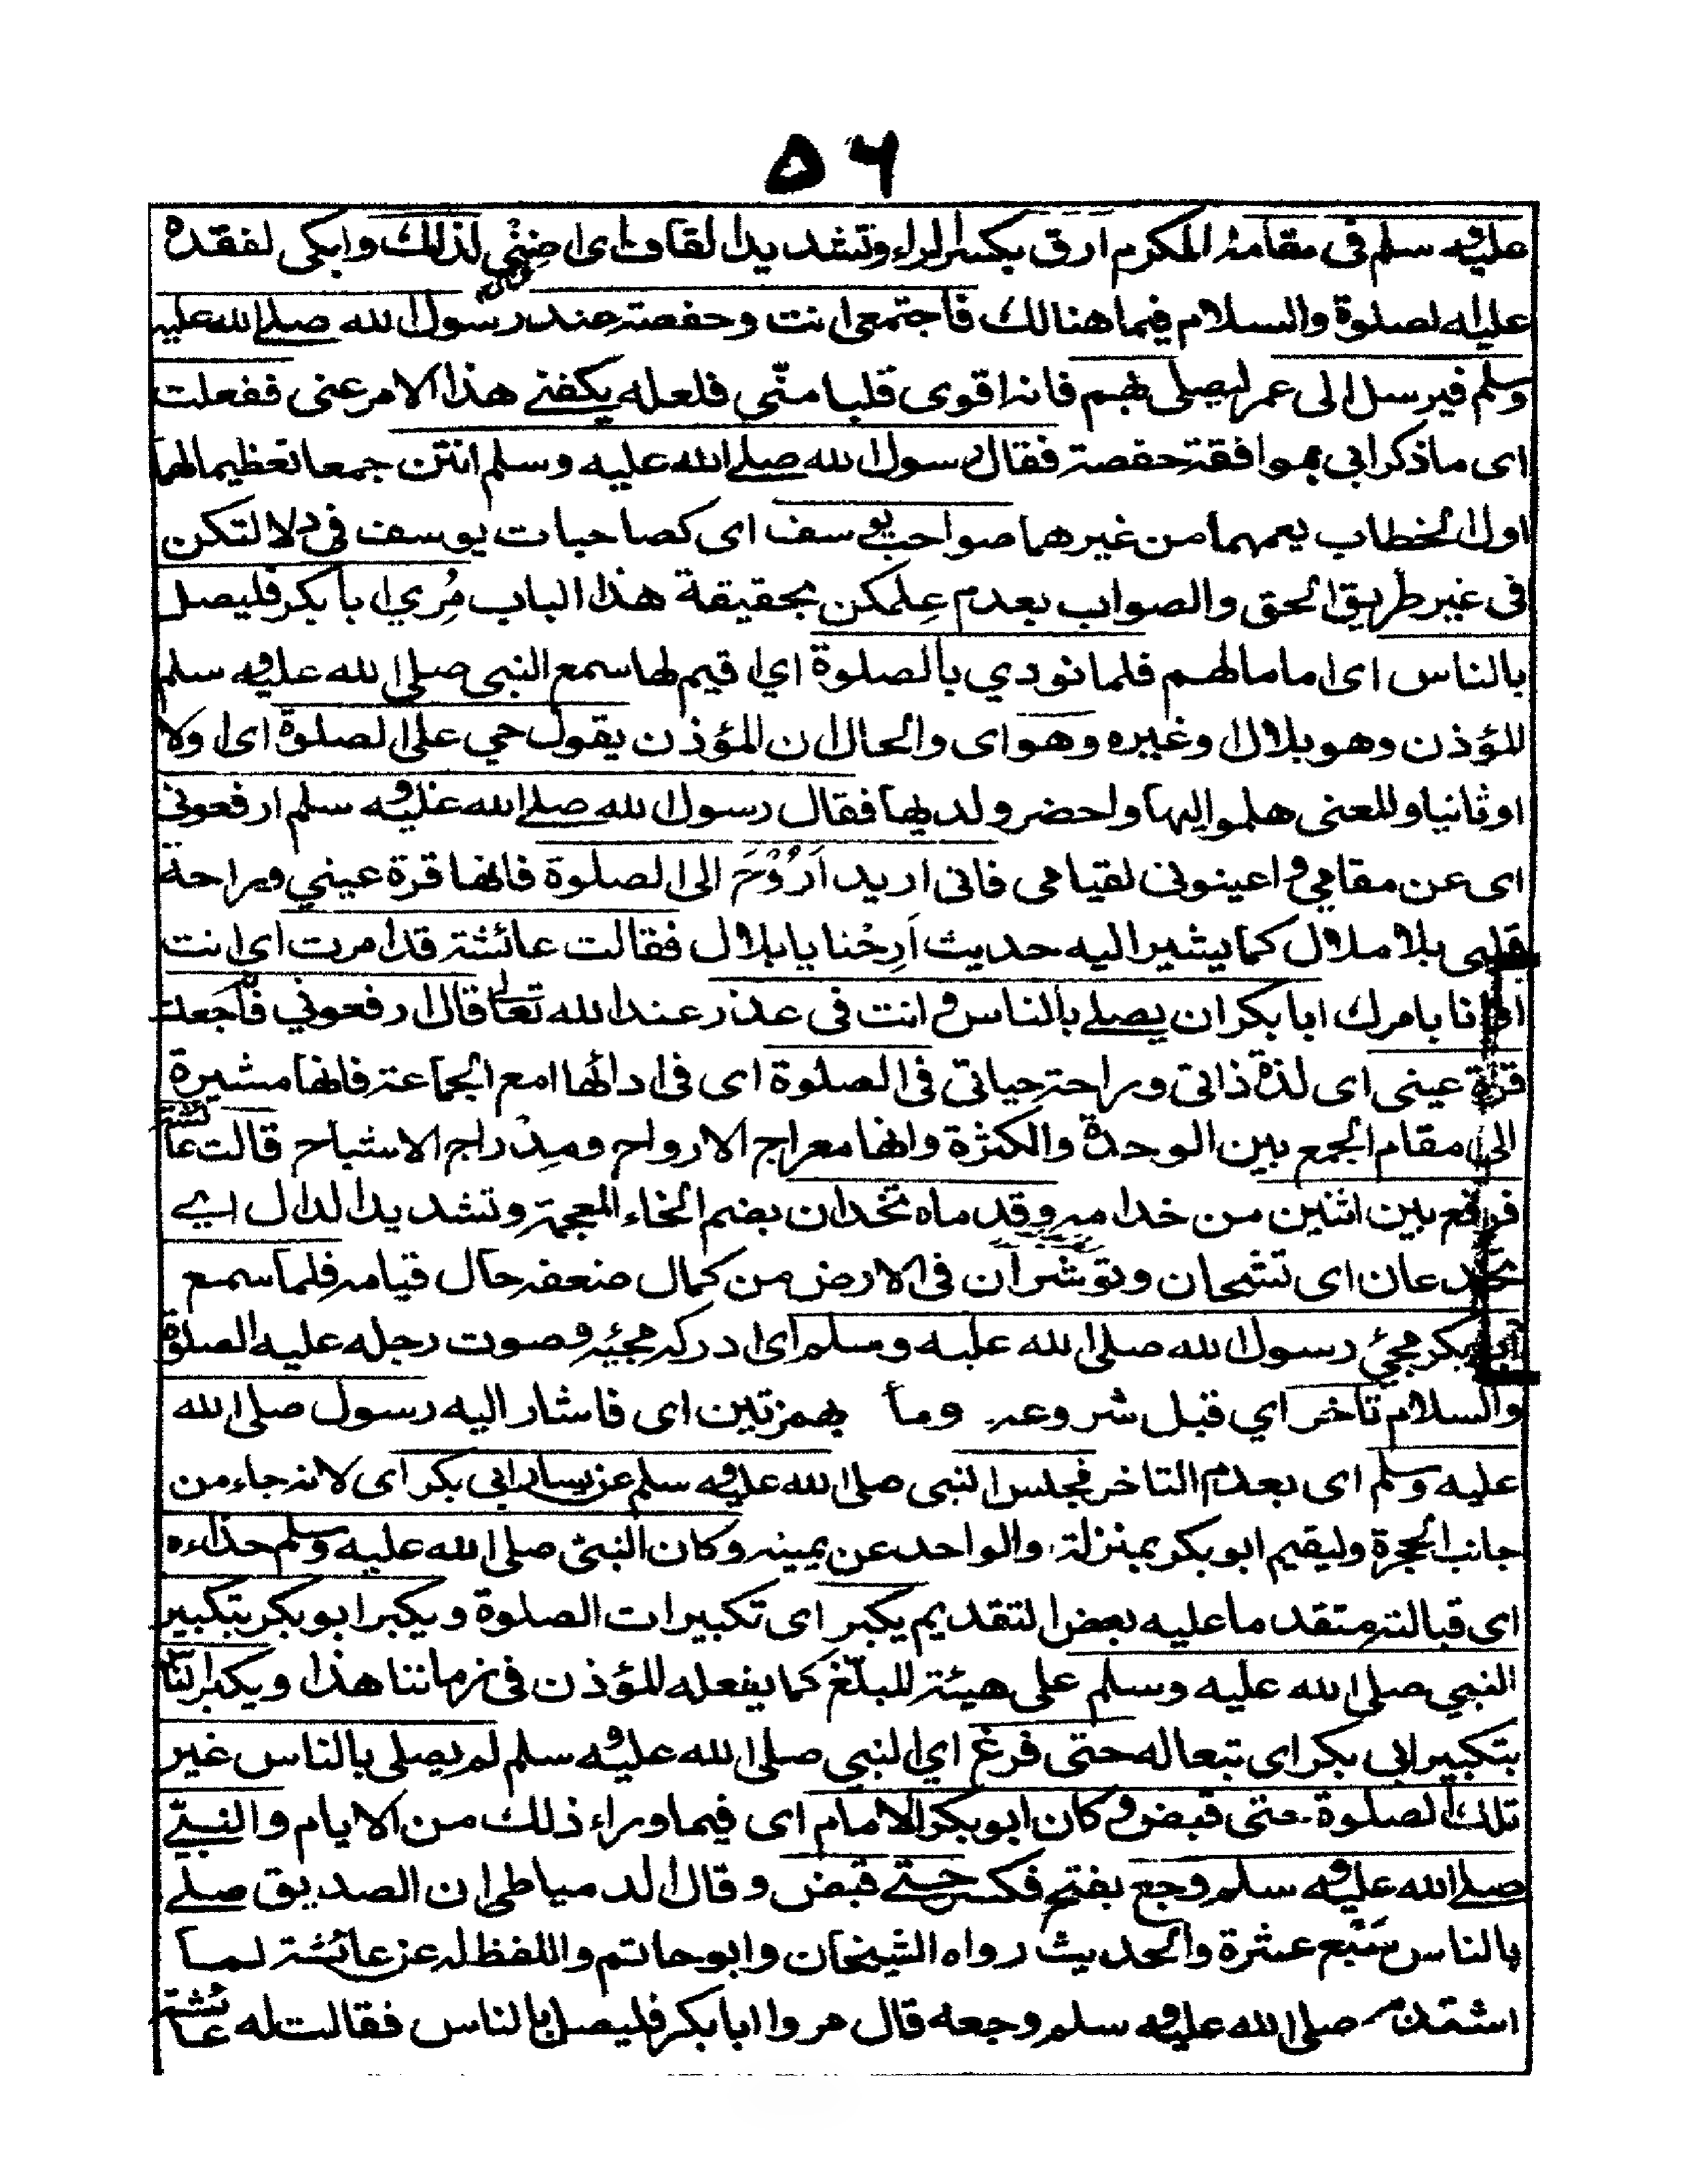 ٥٦
عليه وسلم فى مقامه المكرم ارق بكسر الراء وتشديد القاف اى لذلك وابكى لفقده
عليه الصلوة والسلام فيما هنالك فاجتمعى انت وحفصة عند رسول الله صلى الله عليه
وسلم فيرسل الى عمر ليصلى بهم فانه اقوى قلبا منّى فلعله يكفنى هذا الامر عنى ففعلت
اى ما ذكر ابى بموافقة حفصة فقال رسول الله صلى الله عليه وسلم انتن جمعا تعظيما لهما
او الخطاب يعمهما من غيرهما صواحب يوسف اى كصاحبات يوسف فى دلالتكن
فى غير طريق الحق والصواب بعدم علمكن بحقيقة هذا الباب مُرِي ابا بكر فليصل
بالناس اى اماما لهم فلما نودي بالصلوة اي اقيم لها سمع النبى صلى الله عليه وسلم
المؤذن وهو بلال او غيره وهو اى والحال ان المؤذن يقول حي على الصلوة اى اولا
او ثانيا والمعنى هلموا اليها واحضروا لديها فقال رسول الله صلى الله عليه وسلم ارفعونى
اى عن مقامي واعينونى لقيامى فانى اريد اَرُوْحَ الى الصلوة فانها قرة عيني وراحة
قلبى بلا ملال كما يشير اليه حديث اَرِحْنا يا بلال فقالت عائشة قد امرت اي انت
انا بامرك ابا بكر ان يصلى بالناس وانت فى عذر عند الله تعالى قال ارفعوني فجعلت
قرة عينى اى لذة ذاتى وراحة حياتى فى الصلوة اى فى ادائها مع الجماعة فانها مشيرة
الى مقام الجمع بين الوحدة والكثرة وانها معراج الارواح ومدراج الاشباح قالت عائشة
فرفع بين اثنين من خدامه وقدماه تخدان بضم الخاء المعجمة وتشديد الدال اي
تخدعان اى تشجان وتوشران فى الارض من كمال ضعفه حال قيامه فلما سمع
ابو بكر مجئ رسول الله صلى الله عليه وسلم اى ادركه مجيئه وصوت رجله عليه الصلوة
والسلام تاخر اي قبل شروعه وما بهمزتين اى فاشار اليه رسول صلى الله
عليه وسلم اى بعدم التاخر فجلس النبى صلى الله عليه وسلم عن يسار ابي بكر اى لانه جاء من
جانب الحجرة وليقيم ابو بكر بمنزلة الواحد عن يمينه وكان النبى صلى الله عليه وسلم حذاءه
اى قبالته متقدما عليه بعض التقديم يكبر اى تكبيرات الصلوة ويكبر ابو بكر بتكبير
النبي صلى الله عليه وسلم على هيئة المبلّغ كما يفعله المؤذن فى زماننا هذا ويكبر الناس
بتكبير ابى بكر اى تبعا له حتى فرغ اي النبي صلى الله عليه وسلم لم يصلى بالناس غير
تلك الصلوة حتى قبض وكان ابو بكر الامام اى فيما وراء ذلك من الايام والنبي
صلى الله عليه وسلم وجع بفتح فكسر حتى قبض وقال الدمياطى ان الصديق صلى
بالناس سَبْع عشرة والحديث رواه الشيخان وابو حاتم واللفظ له عن عائشة لما
اشتد صلى الله عليه وسلم وجعه قال مروا ابا بكر فليصل بالناس فقالت له عائشة